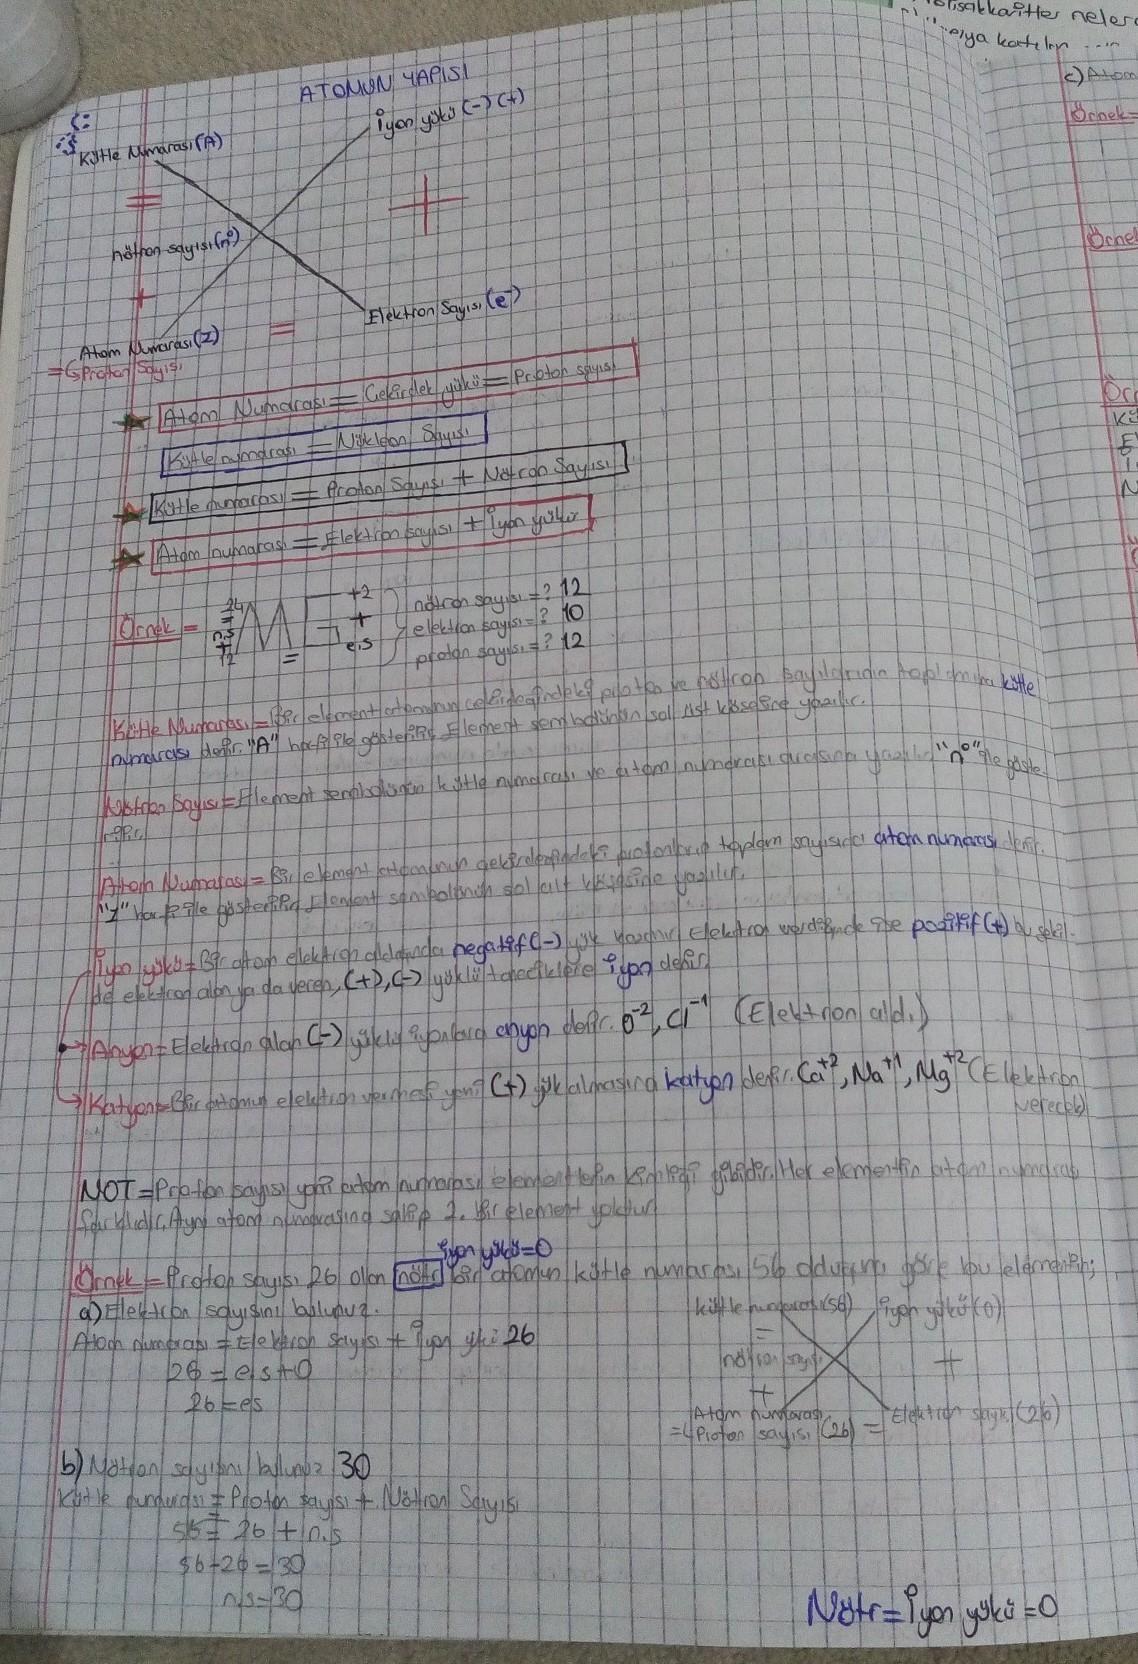 ATOMUN YAPISI
Kütle Numarası(A)
İyon yükü (-) (+)
=
+
nötron sayısı(n°)
+
Elektron Sayısı (e-)
=
Atom Numarası(Z)
=Proton Sayısı
Atom Numarası = Çekirdek yükü = Proton sayısı
Kütle numarası = Nükleon Sayısı
Kütle numarası = Proton Sayısı + Nötron Sayısı
Atom numarası = Elektron sayısı + İyon yükü
Örnek =
24
=
n.s
+
12
Mg
+2
+
e.s
=
nötron sayısı=? 12
elektron sayısı=? 10
proton sayısı=? 12
Kütle Numarası=Bir element atomunun çekirdeğindeki proton ve nötron sayılarının toplamına kütle
numarası denir. "A" harfi ile gösterilir. Element sembolünün sol üst köşesine yazılır.
Nötron Sayısı=Element sembolünün kütle numarası ve atom numarası arasına yazılır "n°" ile göste
rilir.
Atom Numarası=Bir element atomunun çekirdeğindeki protonların toplam sayısıda atom numarası denir.
"Z" harfi ile gösterilir. Element sembolünün sol alt köşesine yazılır.
İyon yükü=Bir atom elektron aldığında negatif(-) yük kazanır, Elektron verdiğinde ise pozitif(+) bu şekil-
de elektron alan ya da veren, (+),(-) yüklü taneciklere iyon denir.
Anyon=Elektron alan (-) yüklü iyonlara anyon denir. O-2, Cl-1 (Elektron aldı)
Katyon=Bir atomun elektron vermesi yani (+) yük almasına katyon denir. Ca+2, Na+1, Mg+2 (Elektron
verecek)
NOT=Proton sayısı yani atom numarası elementlerin kimliği gibidir. Her elementin atom numarası
farklıdır, Aynı atom numarasına sahip 2. bir element yoktur.
İyon yükü=0
Örnek=Proton sayısı 26 olan nötr bir atomun kütle numarası 56 olduğuna göre bu elementin;
a)Elektron sayısını bulunuz.
Atom numarası = Elektron sayısı + İyon yükü 26
26 = e.s+0
26=es
kütle numarası(56)
İyon yükü(0)
=
nötron sayısı
+
+
Atom numarası
=Proton sayısı (26) =
Elektron sayısı(26)
b) Nötron sayısını bulunuz 30
Kütle numarası = Proton sayısı + Nötron Sayısı
56 = 26 + n.s
56-26=30
n.s=30
Nötr=İyon yükü=0
neler
c)Atom
Örnek=
Örnek